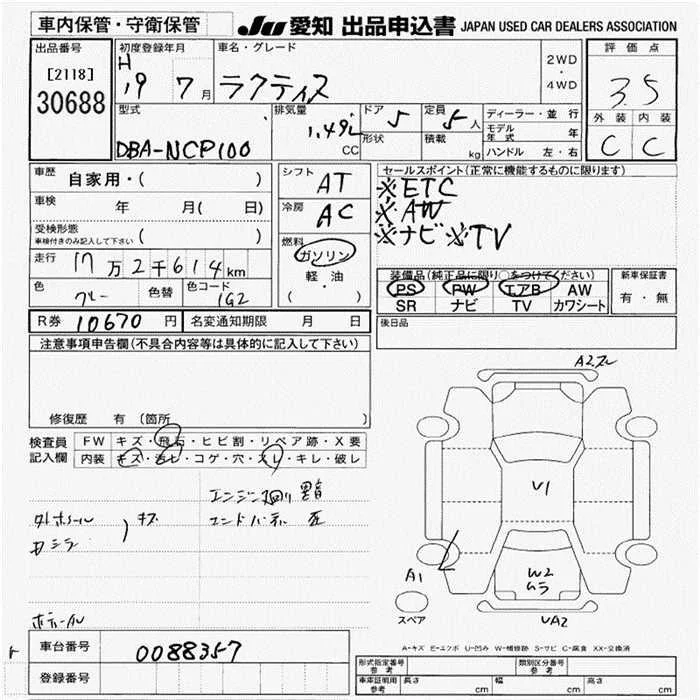 車内保管・守衛保管
JU 愛知 出品申込書 JAPAN USED CAR DEALERS ASSOCIATION
出品番号
[2118]
30688
初度登録年月
H
19 7月
車名・グレード
ラクティス
2WD
・
4WD
評価点
3.5
外装 内装
C C
型式
DBA-NCP100
排気量
1.49L
CC
ドア 5
形状
定員 5人
積載 kg
ディーラー・並行
モデル年式 年
ハンドル 左・右
車歴
自家用・( )
車検 年 月( 日)
受検形態
車検付きのみ記入して下さい ( )
走行 17万2千614km
色 グレー 色替 色コード 1G2
シフト AT
冷房 AC
燃料
ガソリン
軽・油
( )
セールスポイント(正常に機能するものに限ります)
※ETC
※AW
※ナビ※TV
装備品(純正品に限り○をつけてください)
PS PW エアB AW
SR ナビ TV カワシート
新車保証書
有・無
R券 10670円 名変通知期限 月 日
後日品
注意事項申告欄(不具合内容等は具体的に記入して下さい)
修復歴 有 (箇所 )
検査員
記入欄
FW キズ・飛石・ヒビ割・リペア跡・X要
内装 キズ・汚レ・コゲ・穴・スレ・キレ・破レ
エンジン廻り 異音
キズ
A1
U1
W2
ムラ
UA2
スペア
A-キズ E-エクボ U-凹み W-補修跡 S-サビ C-腐食 XX-交換済
車台番号 0088357
登録番号
形式指定番号
参考
類別区分番号
参考
車庫証明用
参考
長さ cm 幅 cm 高さ cm